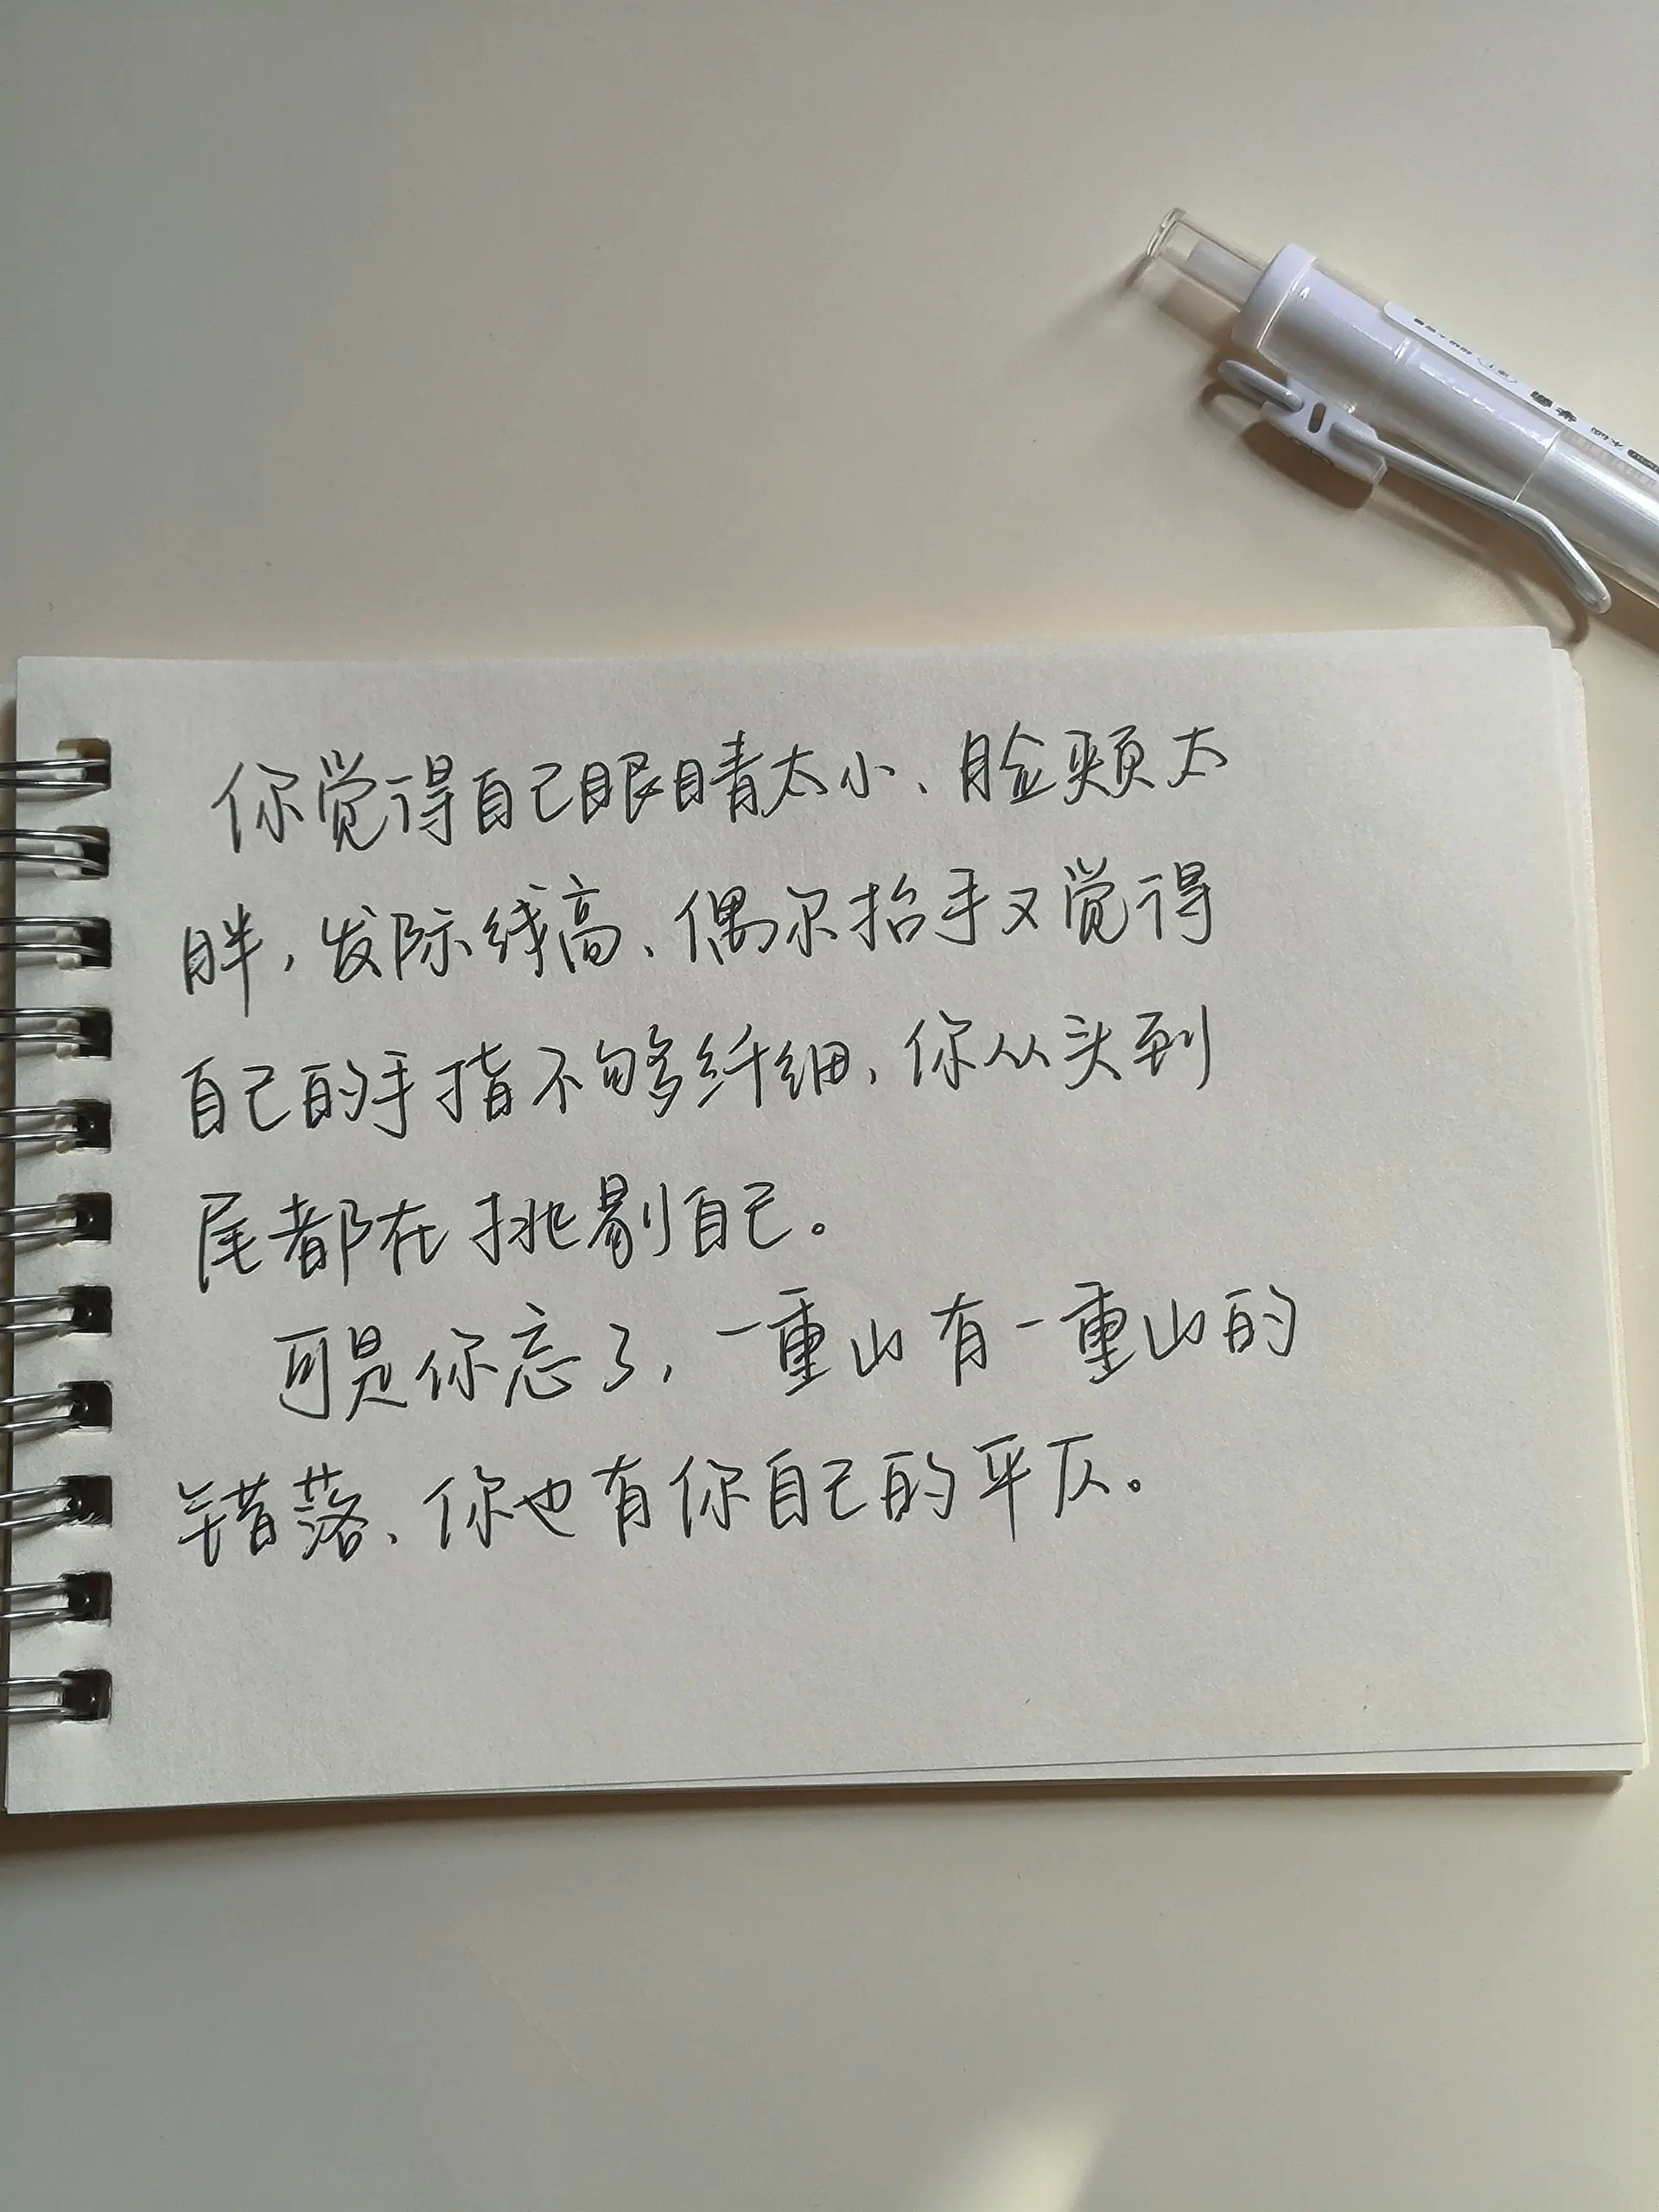 你觉得自己眼睛太小、脸颊太
胖，发际线高、偶尔抬手又觉得
自己的手指不够纤细，你从头到
尾都在挑剔自己。
可是你忘了，一重山有一重山的
错落、你也有你自己的平仄。